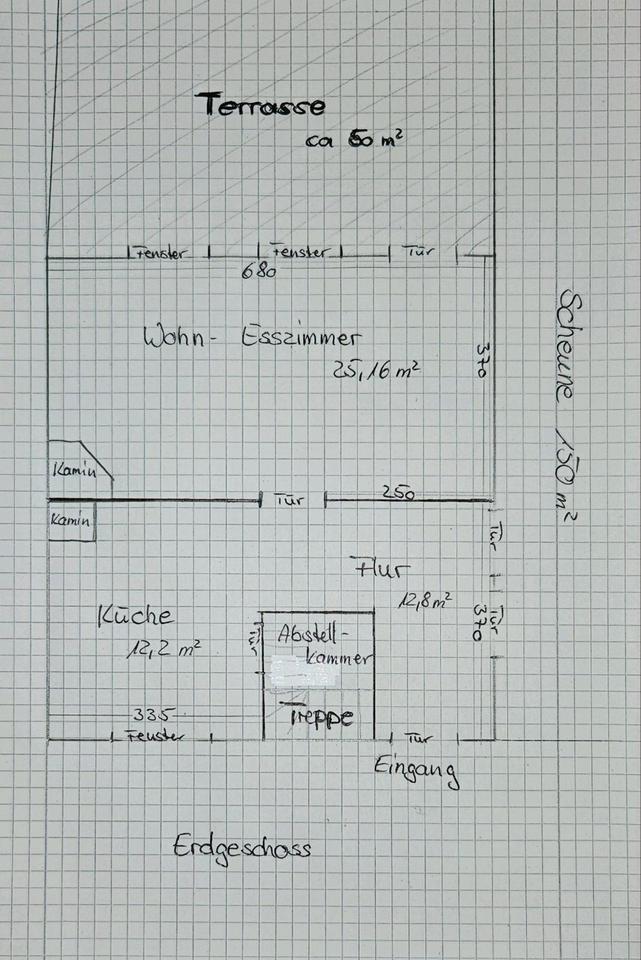 Terrasse
ca 60 m²
Fenster
Fenster
Tür
680
Wohn- Esszimmer
25,16 m²
370
Scheune 150 m²
Kamin
Tür
250
Kamin
Tür
Flur
12,8 m²
Tür
370
Küche
12,2 m²
Tür
Abstell-
kammer
335
Treppe
Fenster
Tür
Eingang
Erdgeschoss